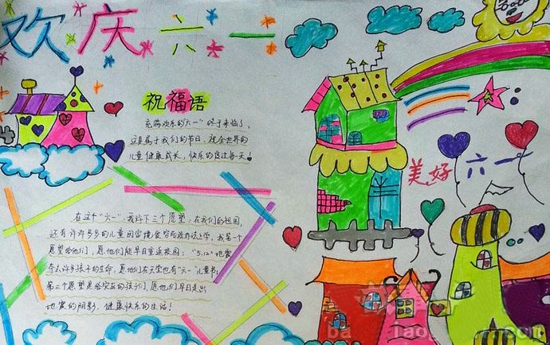 欢庆六一
祝福语
充满欢乐的“六一”终于来临了,
这是属于我们的节日,祝全世界的
儿童健康成长,快乐的度过每一天!
美好
六一
在这个“六一”,我许下三个愿望,在我们的祖国,
还有许许多多的儿童因家境贫穷而没办法上学,我第一个
愿望给他们,愿他们能早日重返校园;“5.12”地震
夺去许多孩子的生命,愿他们在天堂也有“六一”儿童节;
第三个愿望是给灾区的孩子们,愿他们早日走出
地震的阴影,健康快乐的生活!